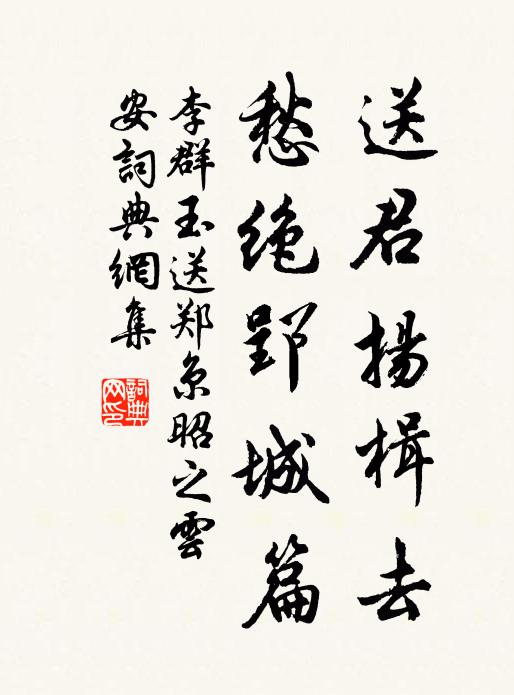 送君揚楫去
愁絶郢城篇
李群玉送郑京昭之雲
安詞典網集
詞典網印